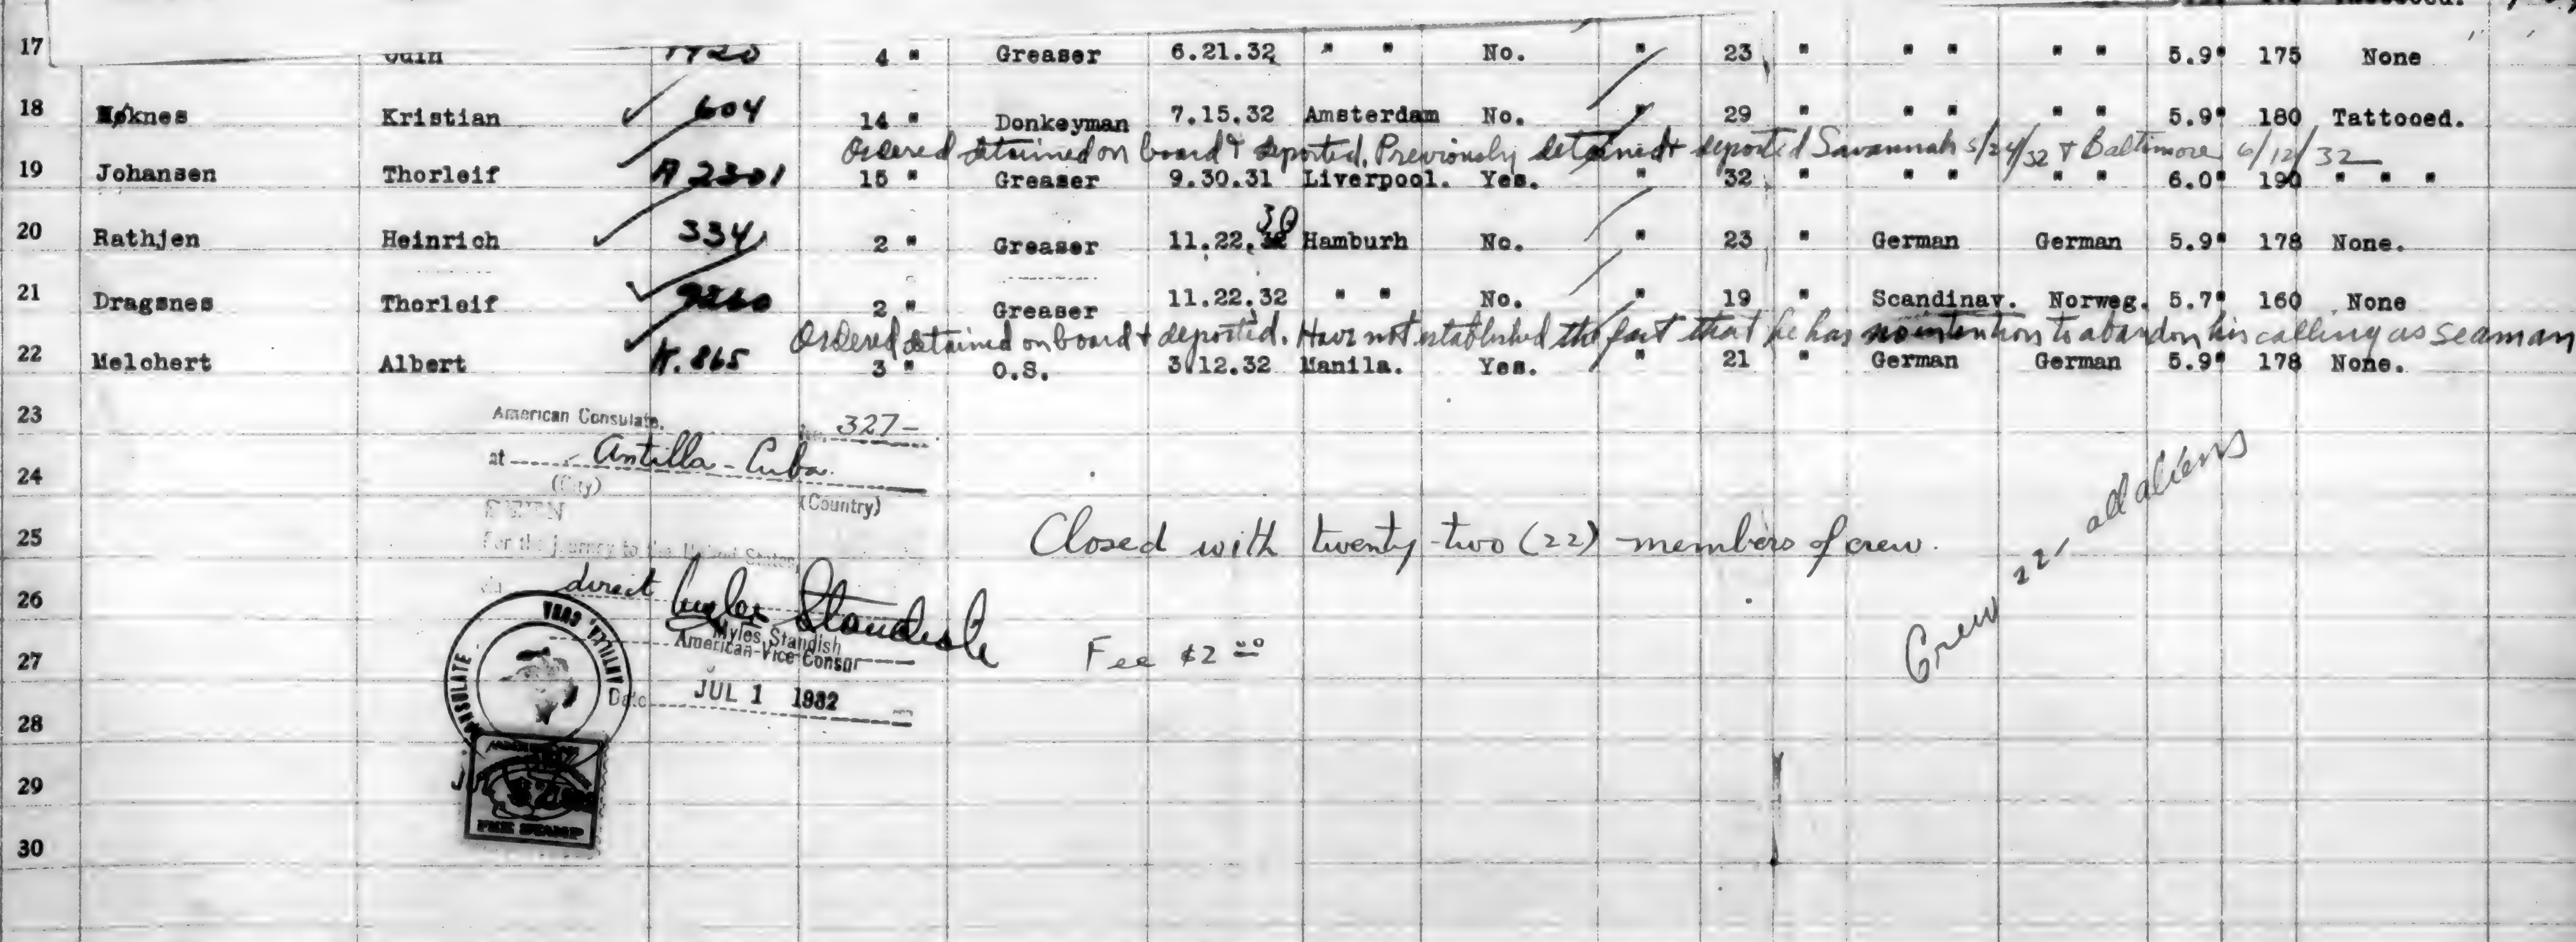 17 4 " Greaser 6.21.32 " " No. " 23 " " " " " 5.9" 175 None
18 Høknes Kristian 604 14 " Donkeyman 7.15.32 Amsterdam No. " 29 " " " " " 5.9" 180 Tattooed.
Ordered detained on board & deported. Previously detained & deported Savannah 5/24/32 & Baltimore 6/12/32
19 Johansen Thorleif A 2301 15 " Greaser 9.30.31 Liverpool. Yes. " 32 " " " " " 6.0" 190 " " "
20 Rathjen Heinrich 334 2 " Greaser 11.22. 30 Hamburh No. " 23 " German German 5.9" 178 None.
21 Dragsnes Thorleif 2 " Greaser 11.22.32 " " No. " 19 " Scandinav. Norweg. 5.7" 160 None
Ordered detained on board & deported. Have not established the fact that he has no intention to abandon his calling as seaman
22 Melchert Albert K.865 3 " O.S. 3.12.32 Manila. Yes. " 21 " German German 5.9" 178 None.
23 American Consulate. No. 327-
24 at Antilla - Cuba.
(City) (Country)
SEEN
25 For the journey to the United States
Closed with twenty-two (22) members of crew.
Crew 22, all aliens
26 direct Myles Standish
Myles Standish
American Vice Consul
27 Fee $2 00
Date JUL 1 1932
ANTILLA, CUBA
28
29
FEE STAMP
30